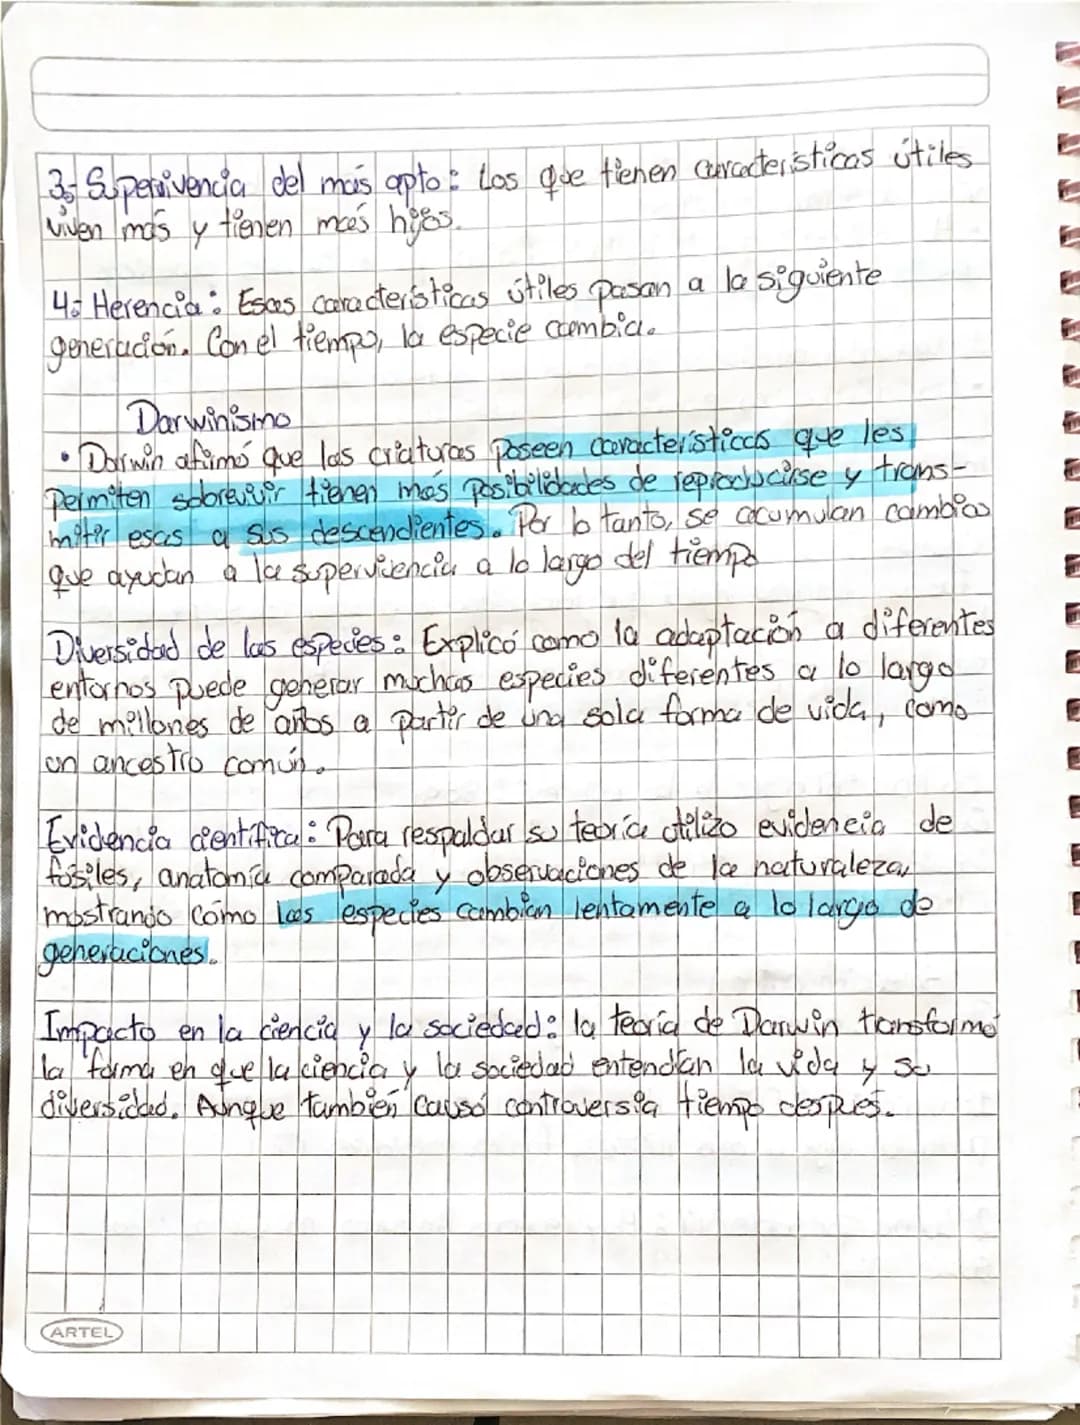 3.- Supervivencia del más apto: Los que tienen características útiles
viven más y tienen más hijos.
4.- Herencia: Esas características útiles pasan a la siguiente
generación. Con el tiempo, la especie cambia.
Darwinismo
• Darwin afirmó que las criaturas poseen características que les
permiten sobrevivir tienen más posibilidades de reproducirse y trans-
mitir esas a sus descendientes. Por lo tanto, se acumulan cambios
que ayudan a la supervivencia a lo largo del tiempo
Diversidad de las especies: Explicó como la adaptación a diferentes
entornos puede generar muchas especies diferentes a lo largo
de millones de años a partir de una sola forma de vida, como
un ancestro común.
Evidencia científica: Para respaldar su teoría utilizo evidencia de
fósiles, anatomía comparada y observaciones de la naturaleza,
mostrando cómo las especies cambian lentamente a lo largo de
generaciones.
Impacto en la ciencia y la sociedad: la teoría de Darwin transformó
la forma en que la ciencia y la sociedad entendían la vida y su
diversidad. Aunque también causó controversia tiempo después.
ARTEL